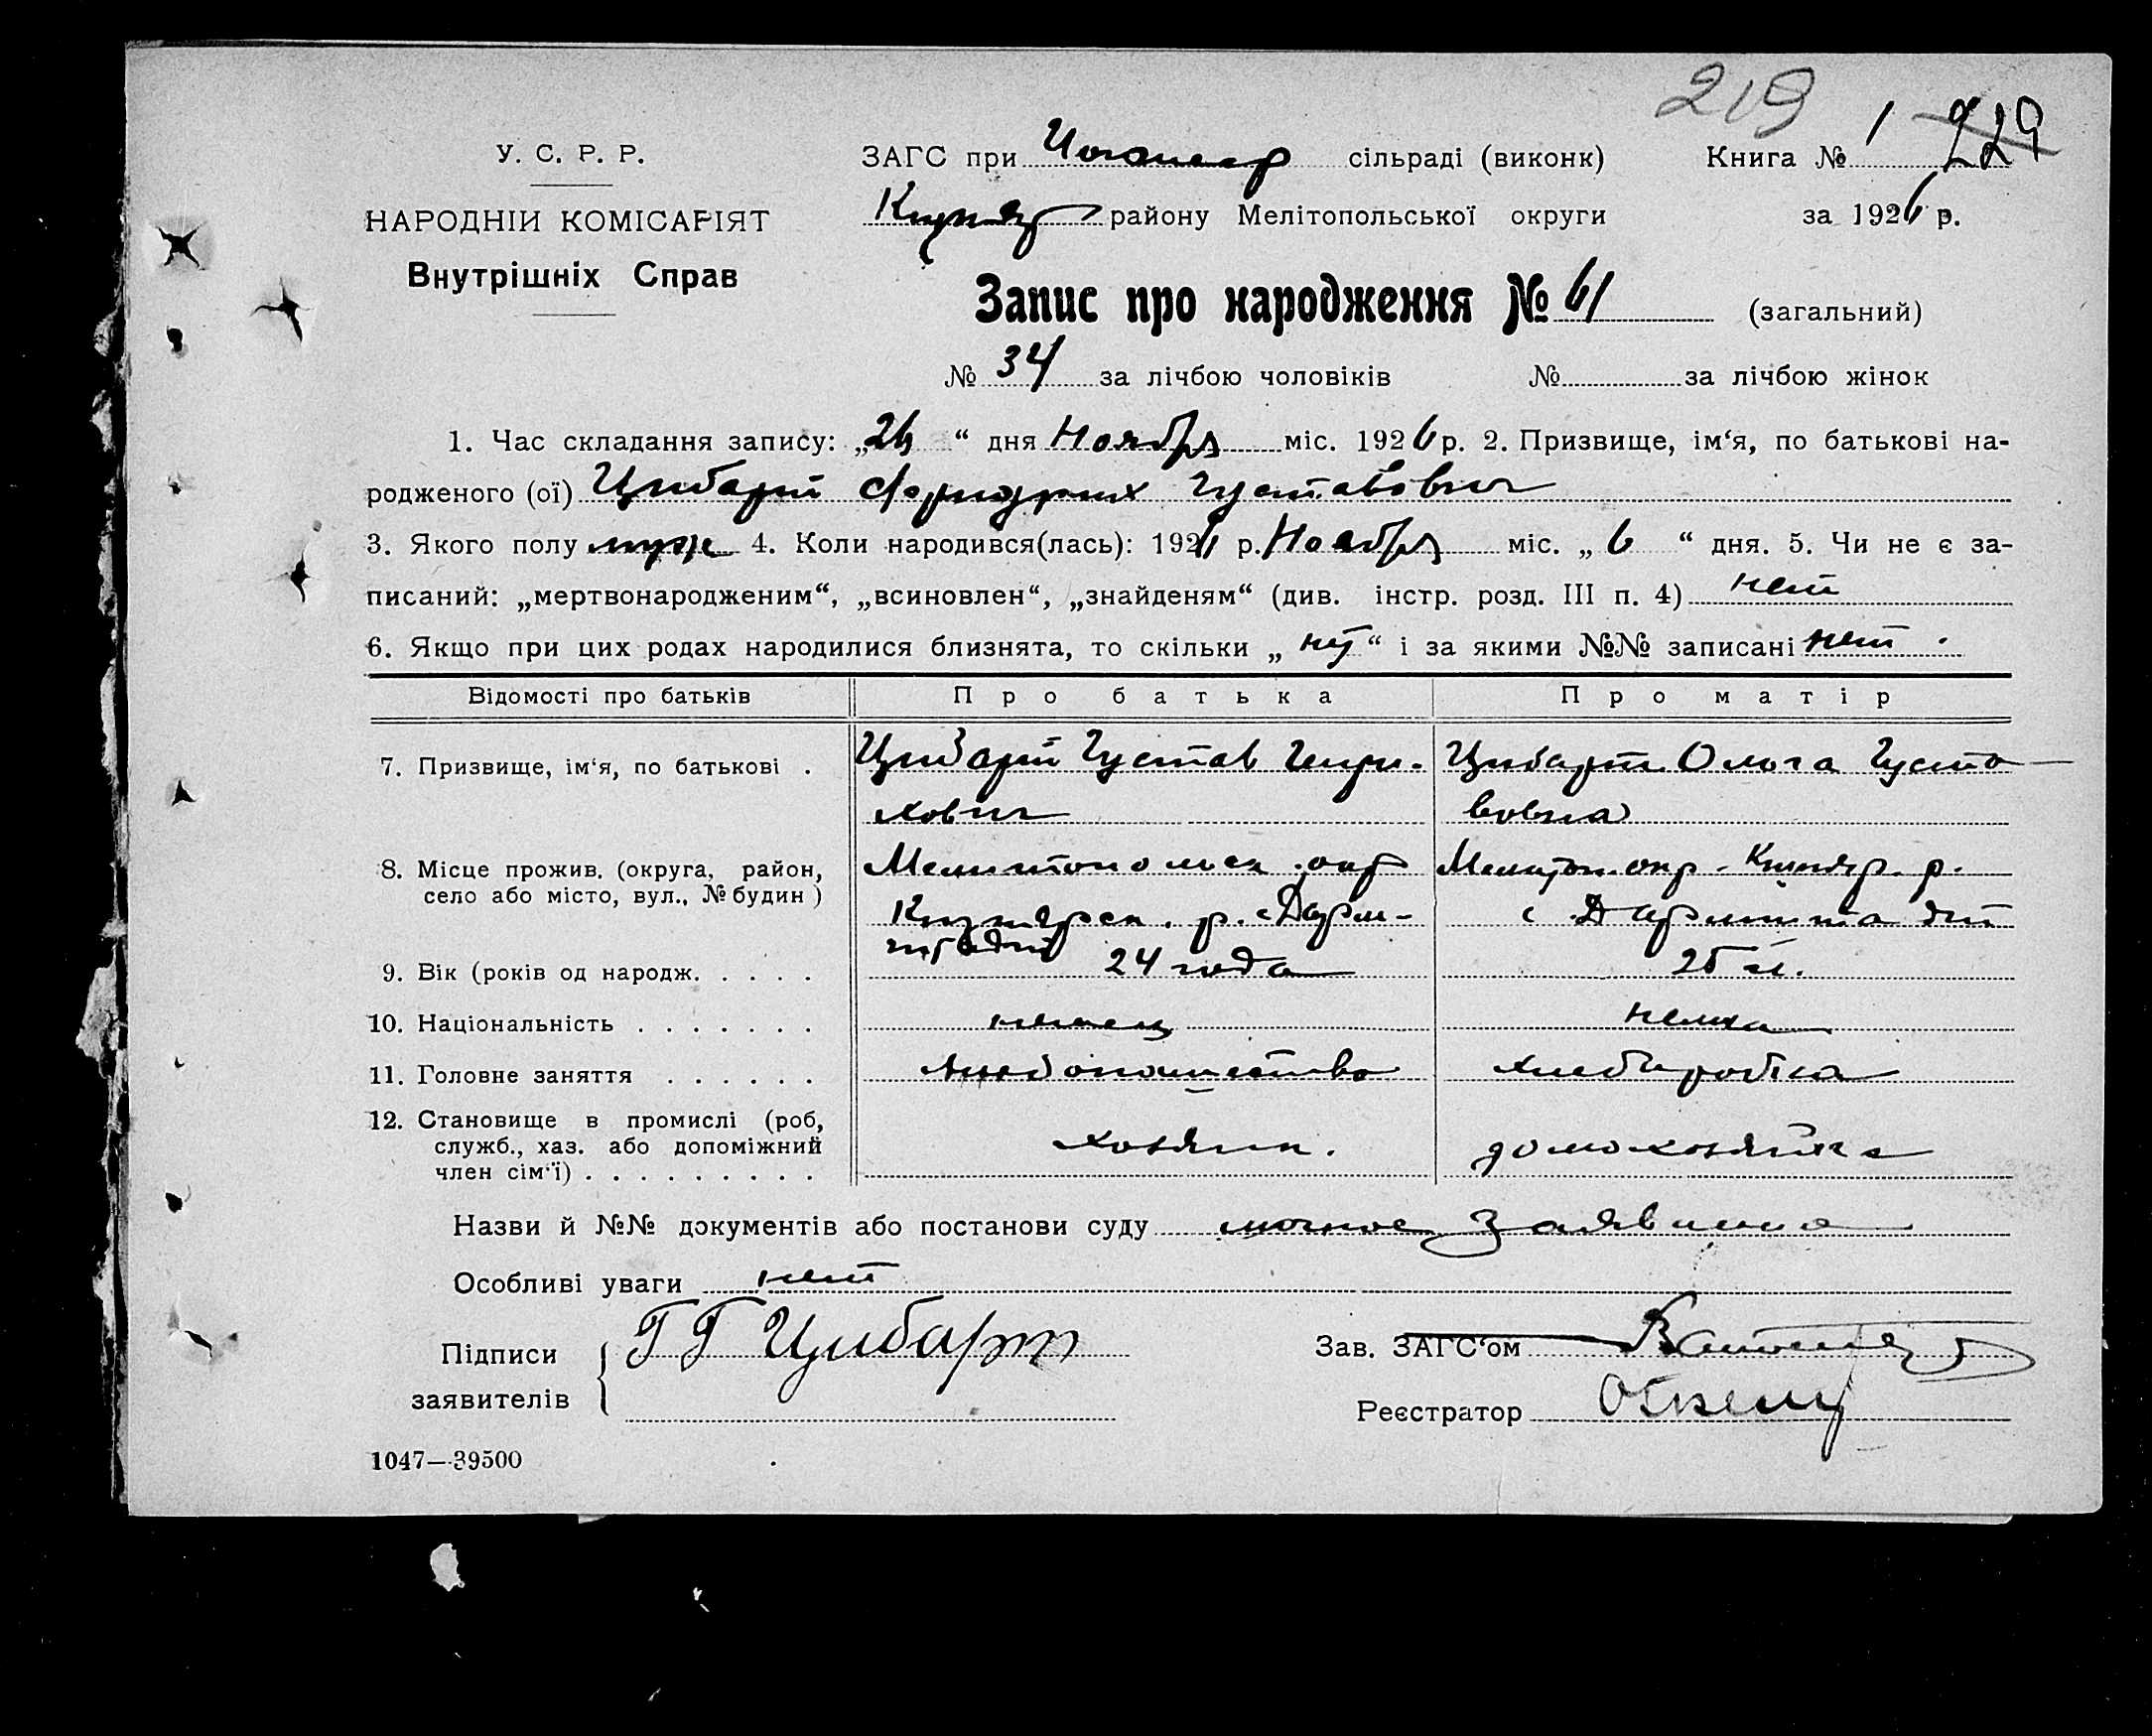 219
У. С. Р. Р.
НАРОДНІЙ КОМІСАРІЯТ
Внутрішніх Справ
ЗАГС при сільраді (виконк) Книга № 1 229
району Мелітопольської округи за 1926 р.
Запис про народження № 61 (загальний)
№ 34 за лічбою чоловіків № за лічбою жінок
1. Час складання запису: „26“ дня Ноября міс. 1926 р. 2. Призвище, ім‘я, по батькові на-
родженого (ої) Цибарт Фридрих Густавович
3. Якого полу муж 4. Коли народився(лась): 1926 р. Ноября міс. „6“ дня. 5. Чи не є за-
писаний: „мертвонародженим“, „всиновлен“, „знайденям“ (див. інстр. розд. III п. 4) нет
6. Якщо при цих родах народилися близнята, то скільки „ “ і за якими №№ записані нет.
Відомості про батьків Про батька Про матір
7. Призвище, ім‘я, по батькові . Цибарт Густав Генри- Цибарт Ольга Густа-
хович вовна
8. Місце прожив. (округа, район, Мелитопольск. окр Мелитоп. окр.
село або місто, вул., № будин) р. с Дарм- с Дармштадт
штадт
9. Вік (років од народж. . . . . 24 года 25 л.
10. Національність . . . . . . . немец немка
11. Головне заняття . . . . . . хлебопашество хлебаробка
12. Становище в промислі (роб,
служб., хаз. або допоміжний хозяин. домохозяйка
член сім‘ї) . . . . . . . . .
Назви й №№ документів або постанови суду личное заявление
Особливі уваги нет
Підписи заявителів Г Г Цибарт
Зав. ЗАГС‘ом
Реєстратор
1047—39500